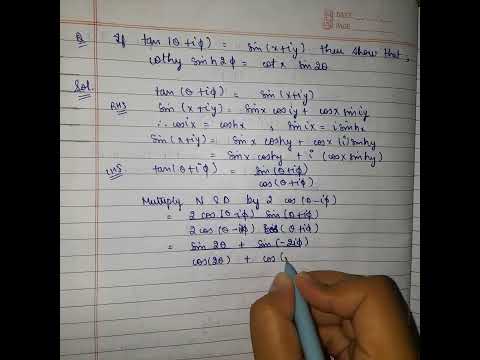 DATE
PAGE
Q If tan (θ + iϕ) = sin (x+iy) then show that,
cothy sinh 2ϕ = cot x sin 2θ
Sol. tan (θ + iϕ) = sin (x+iy)
RHS sin (x+iy) = sin x cos iy + cos x sin iy
∴ cos ix = cosh x , sin ix = i sinh x
sin (x+iy) = sin x cosh y + cos x (i) sinh y
= sin x cosh y + i (cos x sinh y)
LHS tan (θ + iϕ) = sin (θ + iϕ)
cos (θ + iϕ)
Multiply N & D by 2 cos (θ - iϕ)
= 2 cos (θ - iϕ) sin (θ + iϕ)
2 cos (θ - iϕ) cos (θ + iϕ)
= sin 2θ + sin (-2iϕ)
cos (2θ) + cos (